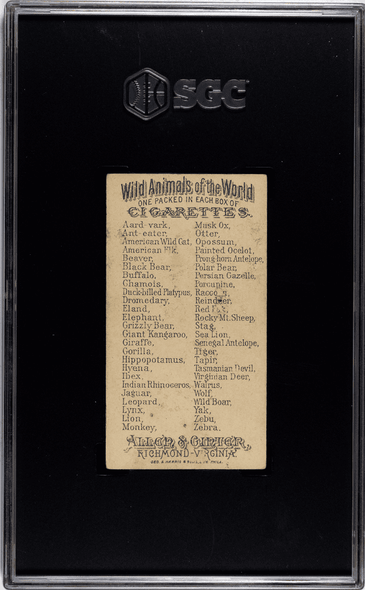 SGC
Wild Animals of the World
ONE PACKED IN EACH BOX OF
CIGARETTES.
Aard-vark,
Ant-eater,
American Wild Cat,
American Elk,
Beaver,
Black Bear,
Buffalo,
Chamois,
Duck-billed Platypus,
Dromedary,
Eland,
Elephant,
Grizzly Bear,
Giant Kangaroo,
Giraffe,
Gorilla,
Hippopotamus,
Hyena,
Ibex,
Indian Rhinoceros,
Jaguar,
Leopard,
Lynx,
Lion,
Monkey,
Musk Ox,
Otter,
Opossum,
Painted Ocelot,
Prong-horn Antelope,
Polar Bear,
Persian Gazelle,
Porcupine,
Raccoon,
Reindeer,
Red Fox,
Rocky Mt. Sheep,
Stag,
Sea Lion,
Senegal Antelope,
Tiger,
Tapir,
Tasmanian Devil,
Virginian Deer,
Walrus,
Wolf,
Wild Boar,
Yak,
Zebu,
Zebra.
ALLEN & GINTER,
RICHMOND-VIRGINIA.
GEO. S. HARRIS & SONS, PHILA.